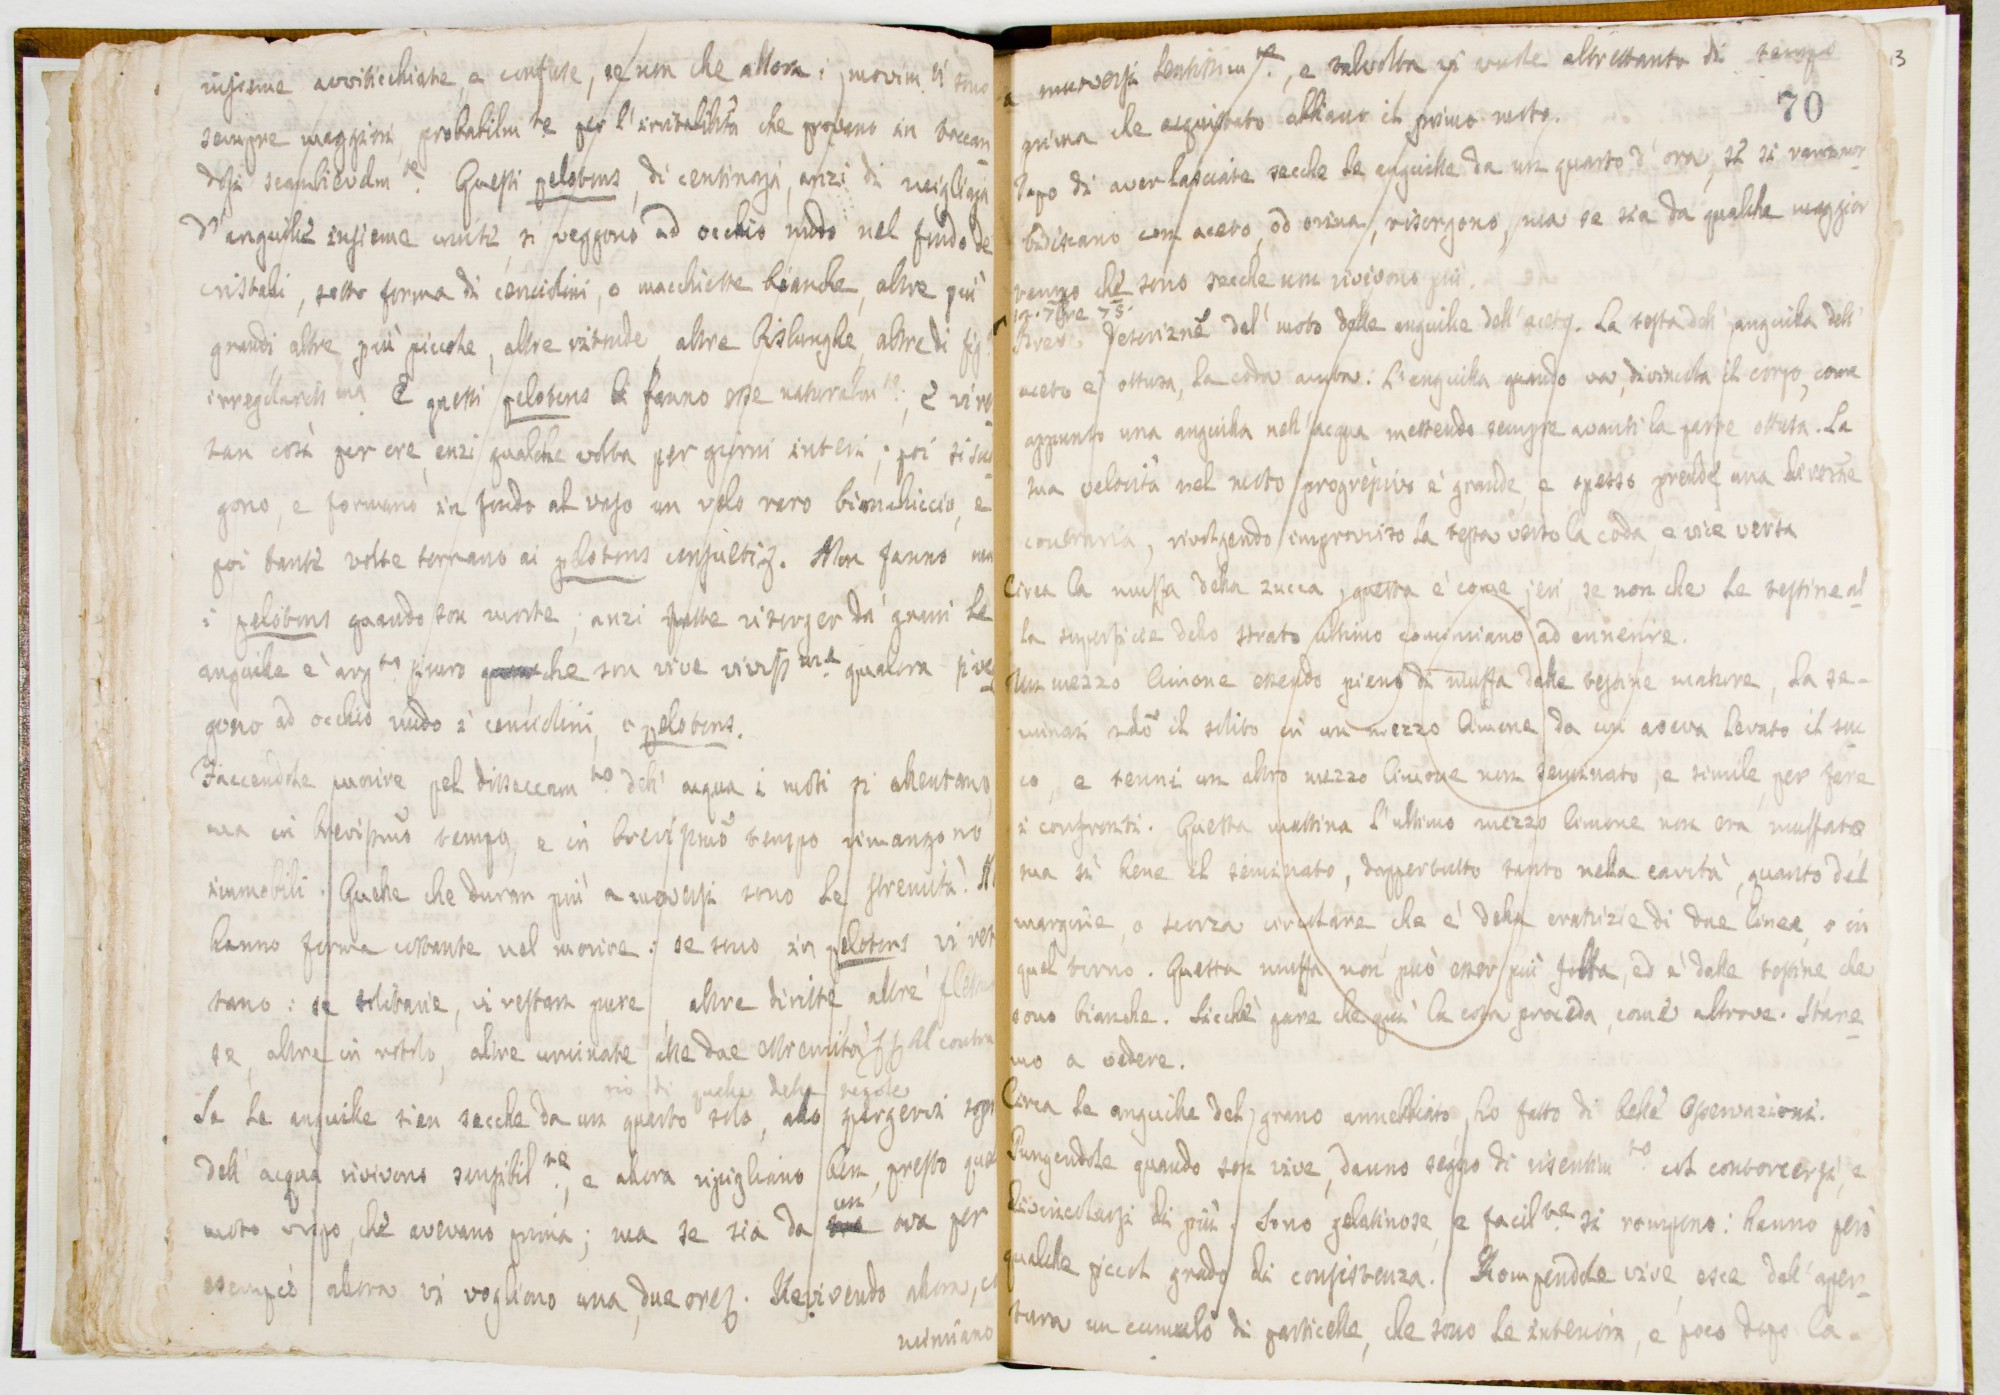 insieme avviticchiate, e confuse, se non che allora i movim.ti sono
sempre maggiori, probabilm.te per l'irritabilità che provano in toccan
dosi scambievolm.te. Questi pelotons, di centinaja, anzi di migliaja
d'anguille insieme unite, si veggono ad occhio nudo nel fondo de
cristalli, sotto forma di cenciolini, o macchiette bianche, altre più
grandi altre più piccole, altre ritonde, altre bislunghe, altre di fig.
irregolariss.ma. E questi pelotons li fanno esse naturalm.te; e vi re
stan così per ore, anzi qualche volta per giorni interi; poi si
gono, e formano in fondo al vaso un velo raro bianchiccio, e
poi tante volte tornano ai pelotons consueti. Non fanno mai
i pelotons quando son morte; anzi fatte risorger da' grani le
anguille è arg.to sicuro che son vive viviss.me qualora si veg
gono ad occhio nudo i cenciolini, o pelotons.
Faccendole morire pel disseccam.to dell' acqua i moti si allentano,
ma in brevissimo tempo, e in brevissimo tempo rimangono
immobili. Quelle che duran più a moversi sono le stremità. N
hanno forma costante nel morire: se sono in pelotons, vi res
tano: se solitarie, vi restan pure, altre diritte, altre
se, altre in rotolo, altre uncinate alle due estremità. Al contra
rio di quelle delle tegole
Se le anguille sien secche da un quarto solo, allo spargervi sopra
dell' acqua rivivono sensibil.te, e allora ripigliano ben presto quel
moto che avevano prima; ma se sia da un ora per
esempio allora vi vogliono una, due ore. Rivivendo allora, co
minciano
a muoversi lentissim.te, e talvolta vi vuole altrettanto di tempo
70
prima che acquistato abbiano il primo moto.
Dopo di aver lasciate secche le anguille da un quarto d'ora, se si rammor
bidiscano con aceto, od orina, risorgono, ma se sia da qualche maggior
tempo che sono secche non rivivono più.
10. 7bre 75.
Breve descrizne del moto delle anguille dell' aceto. La testa dell' anguilla dell'
aceto è ottusa, la coda acuta. L'anguilla quando va, divincola il corpo, come
appunto una anguilla nell' acqua mettendo sempre avanti la parte ottusa. La
sua velocità nel moto progressivo è grande, e spesso prende una direzne
contraria, rivolgendo improvviso la testa verso la coda, e vice versa
Circa la muffa della zucca, questa è come jeri, se non che le testine al
la superficie dello strato ultimo cominciano ad annerire.
Un mezzo limone essendo pieno di muffa dalle testine mature, la se-
minai sdo il solito in un mezzo limone da cui aveva levato il suc
co, e tenni un altro mezzo limone non seminato, e simile, per fare
i confronti. Questa mattina l'ultimo mezzo limone non era muffato,
ma sì bene il seminato, dappertutto tanto nella cavità, quanto del
margine, o scorza circolare che è della crassizie di due linee, o in
quel torno. Questa muffa non può esser più folta, ed è dalle testine, che
sono bianche. Sicchè pare che qui la cosa proceda, come altrove. Stare
mo a vedere.
Circa le anguille del grano annebbiato, ho fatto di belle Osservazioni.
Pungendole quando son vive, danno segno di risentim.to col contorcersi, e
divincolarsi di più. Sono gelatinose, e facil.te si rompono: hanno però
qualche piccol grado di consistenza. Rompendole vive, esce dall' aper-
tura un cumulo di particelle, che sono le interiora, e poco dopo la-